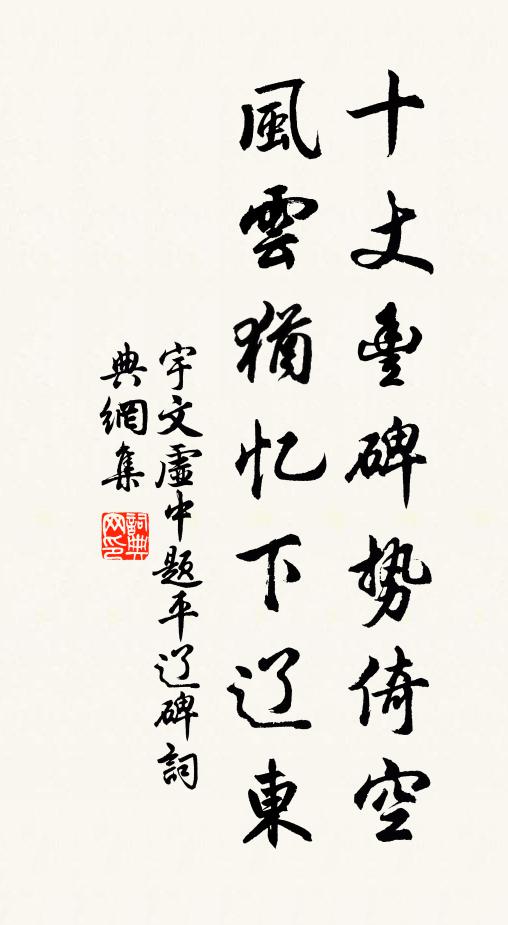 十丈豐碑势倚空
風雲猶忆下辽東
宇文虛中题平辽碑詞
典網集
詞典网印